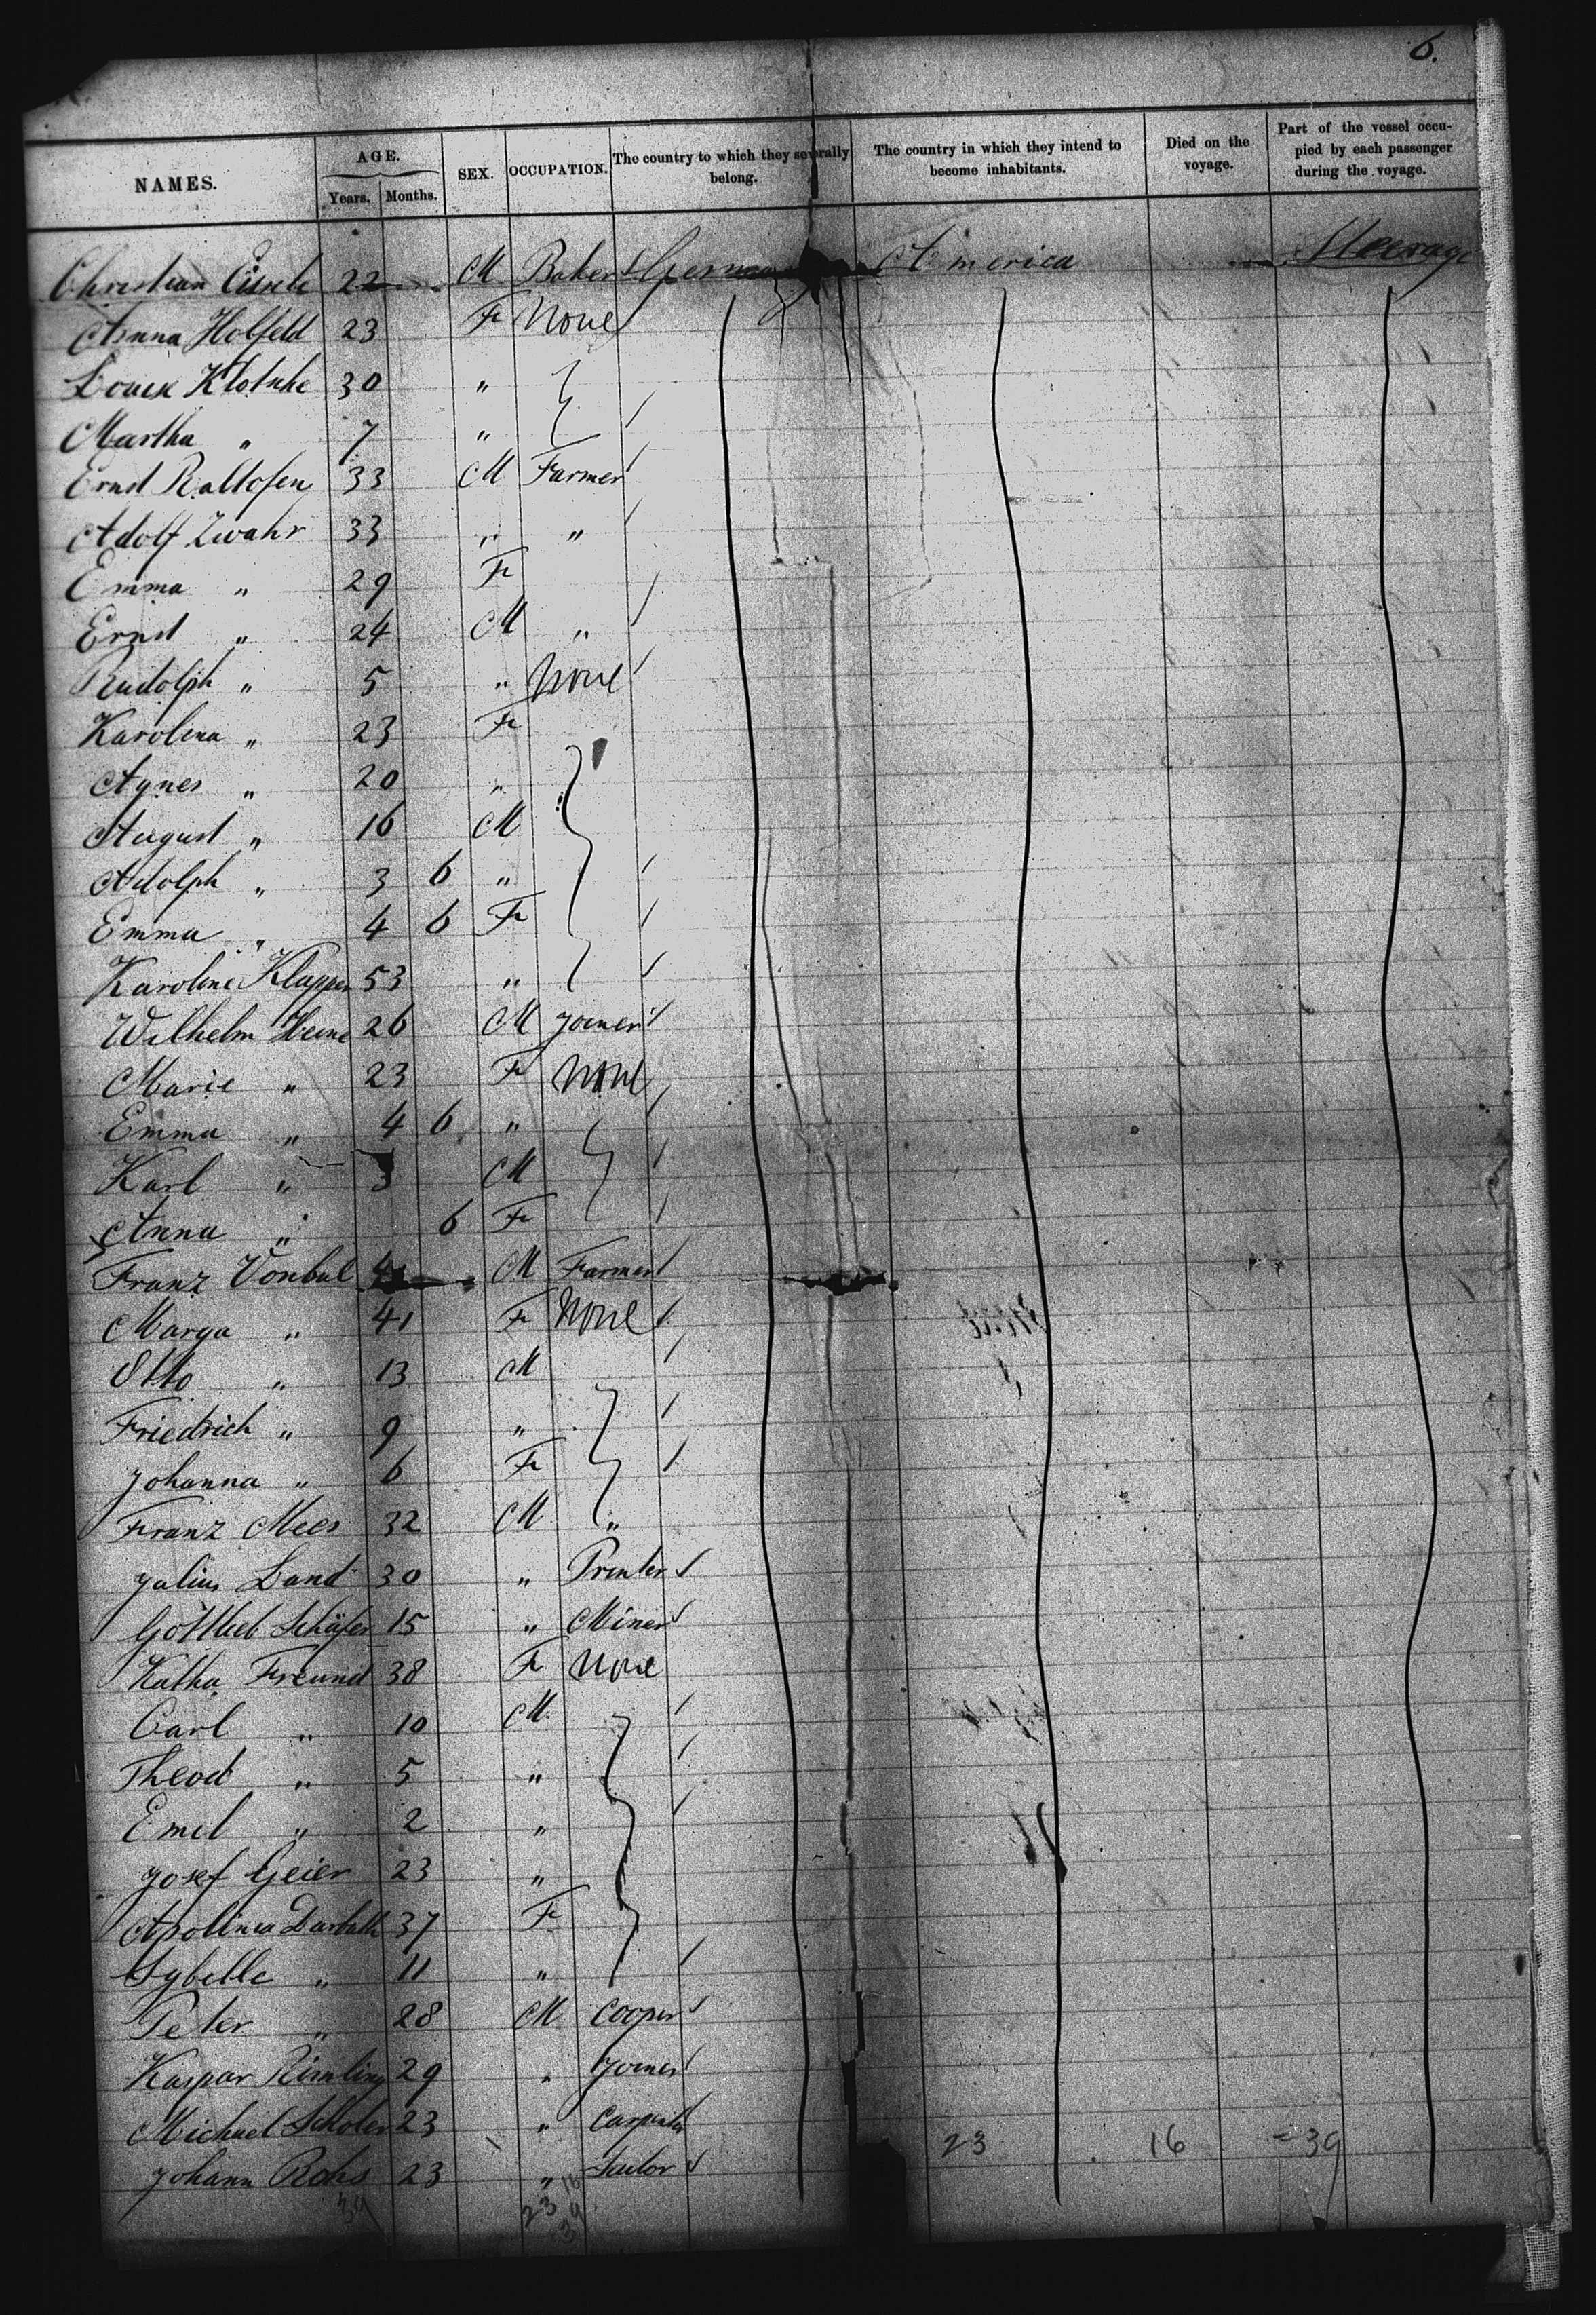 6.
NAMES. AGE. Years. Months. SEX. OCCUPATION. The country to which they severally belong. The country in which they intend to become inhabitants. Died on the voyage. Part of the vessel occupied by each passenger during the voyage.
Christian 22 M Baker Germany America Steerage
Anna Holfeld 23 F None
Louise 30 "
Martha " 7 "
Ernst Raltofen 33 M Farmer
Adolf Zwahr 33 " "
Emma " 29 F
Ernst " 24 M "
Rudolph " 5 " None
Karolina " 23 F
Agnes " 20 "
August " 16 M
Adolph " 3 6 "
Emma " 4 6 F
Karoline Klapper 53 "
Wilhelm Heine 26 M Joiner
Marie " 23 F None
Emma " 4 6 "
Karl " 3 M
Anna " 6 F
Franz Vonbul M Farmer
Marga " 41 F None
Otto " 13 M
Friedrich " 9 "
Johanna " 6 F
Franz Mees 32 M "
Julius Land 30 " Printer
Gottlieb Schäfer 15 " Miner
Katha Freund 38 F None
Carl " 10 M
Theod " 5 "
Emil " 2 "
Josef Geier 23 "
Apolinia 37 F
Sybille " 11 "
Peter " 28 M Cooper
Kaspar Rimling 29 " Joiner
Michael Scholer 23 " Carpenter
23 16 = 39
Johann Rohs 23 " Sailor
39 23 16 39